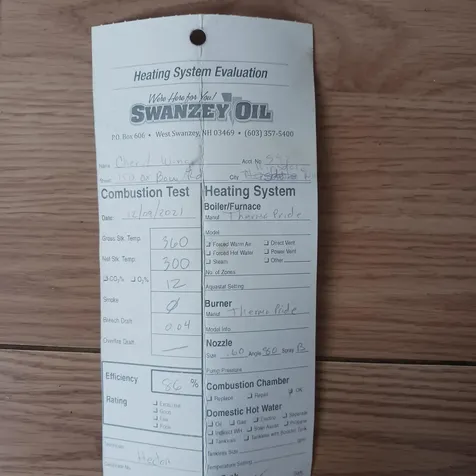 Heating System Evaluation
We're Here for You!
SWANZEY OIL
P.O. Box 606 • West Swanzey, NH 03469 • (603) 357-5400
Name Cheryl
Acct. No.
Street
City
Combustion Test
Date: 12/09/2021
Gross Stk. Temp. 360
Net Stk. Temp. 300
CO₂% O₂% 12
Smoke 0
Breech Draft 0.04
Overfire Draft —
Efficiency 86 %
Rating
Excellent
Good
Fair
Poor
Technician
Heating System
Boiler/Furnace
Manuf. Thermo Pride
Model
Forced Warm Air Direct Vent
Forced Hot Water Power Vent
Steam Other
No. of Zones
Aquastat Setting
Burner
Manuf. Thermo Pride
Model Info.
Nozzle
Size .60 Angle 80 Spray B
Pump Pressure
Combustion Chamber
Replace Repair OK
Domestic Hot Water
Oil Gas Electric
Tankless
Tankless Size
Temperature Setting